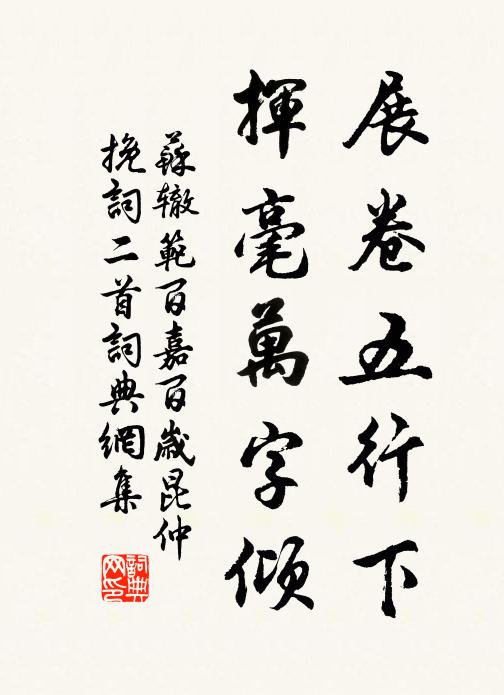 展卷五行下
揮毫萬字傾
蘇辙範百嘉百歲昆仲
挽詞二首詞典網集
詞典网印